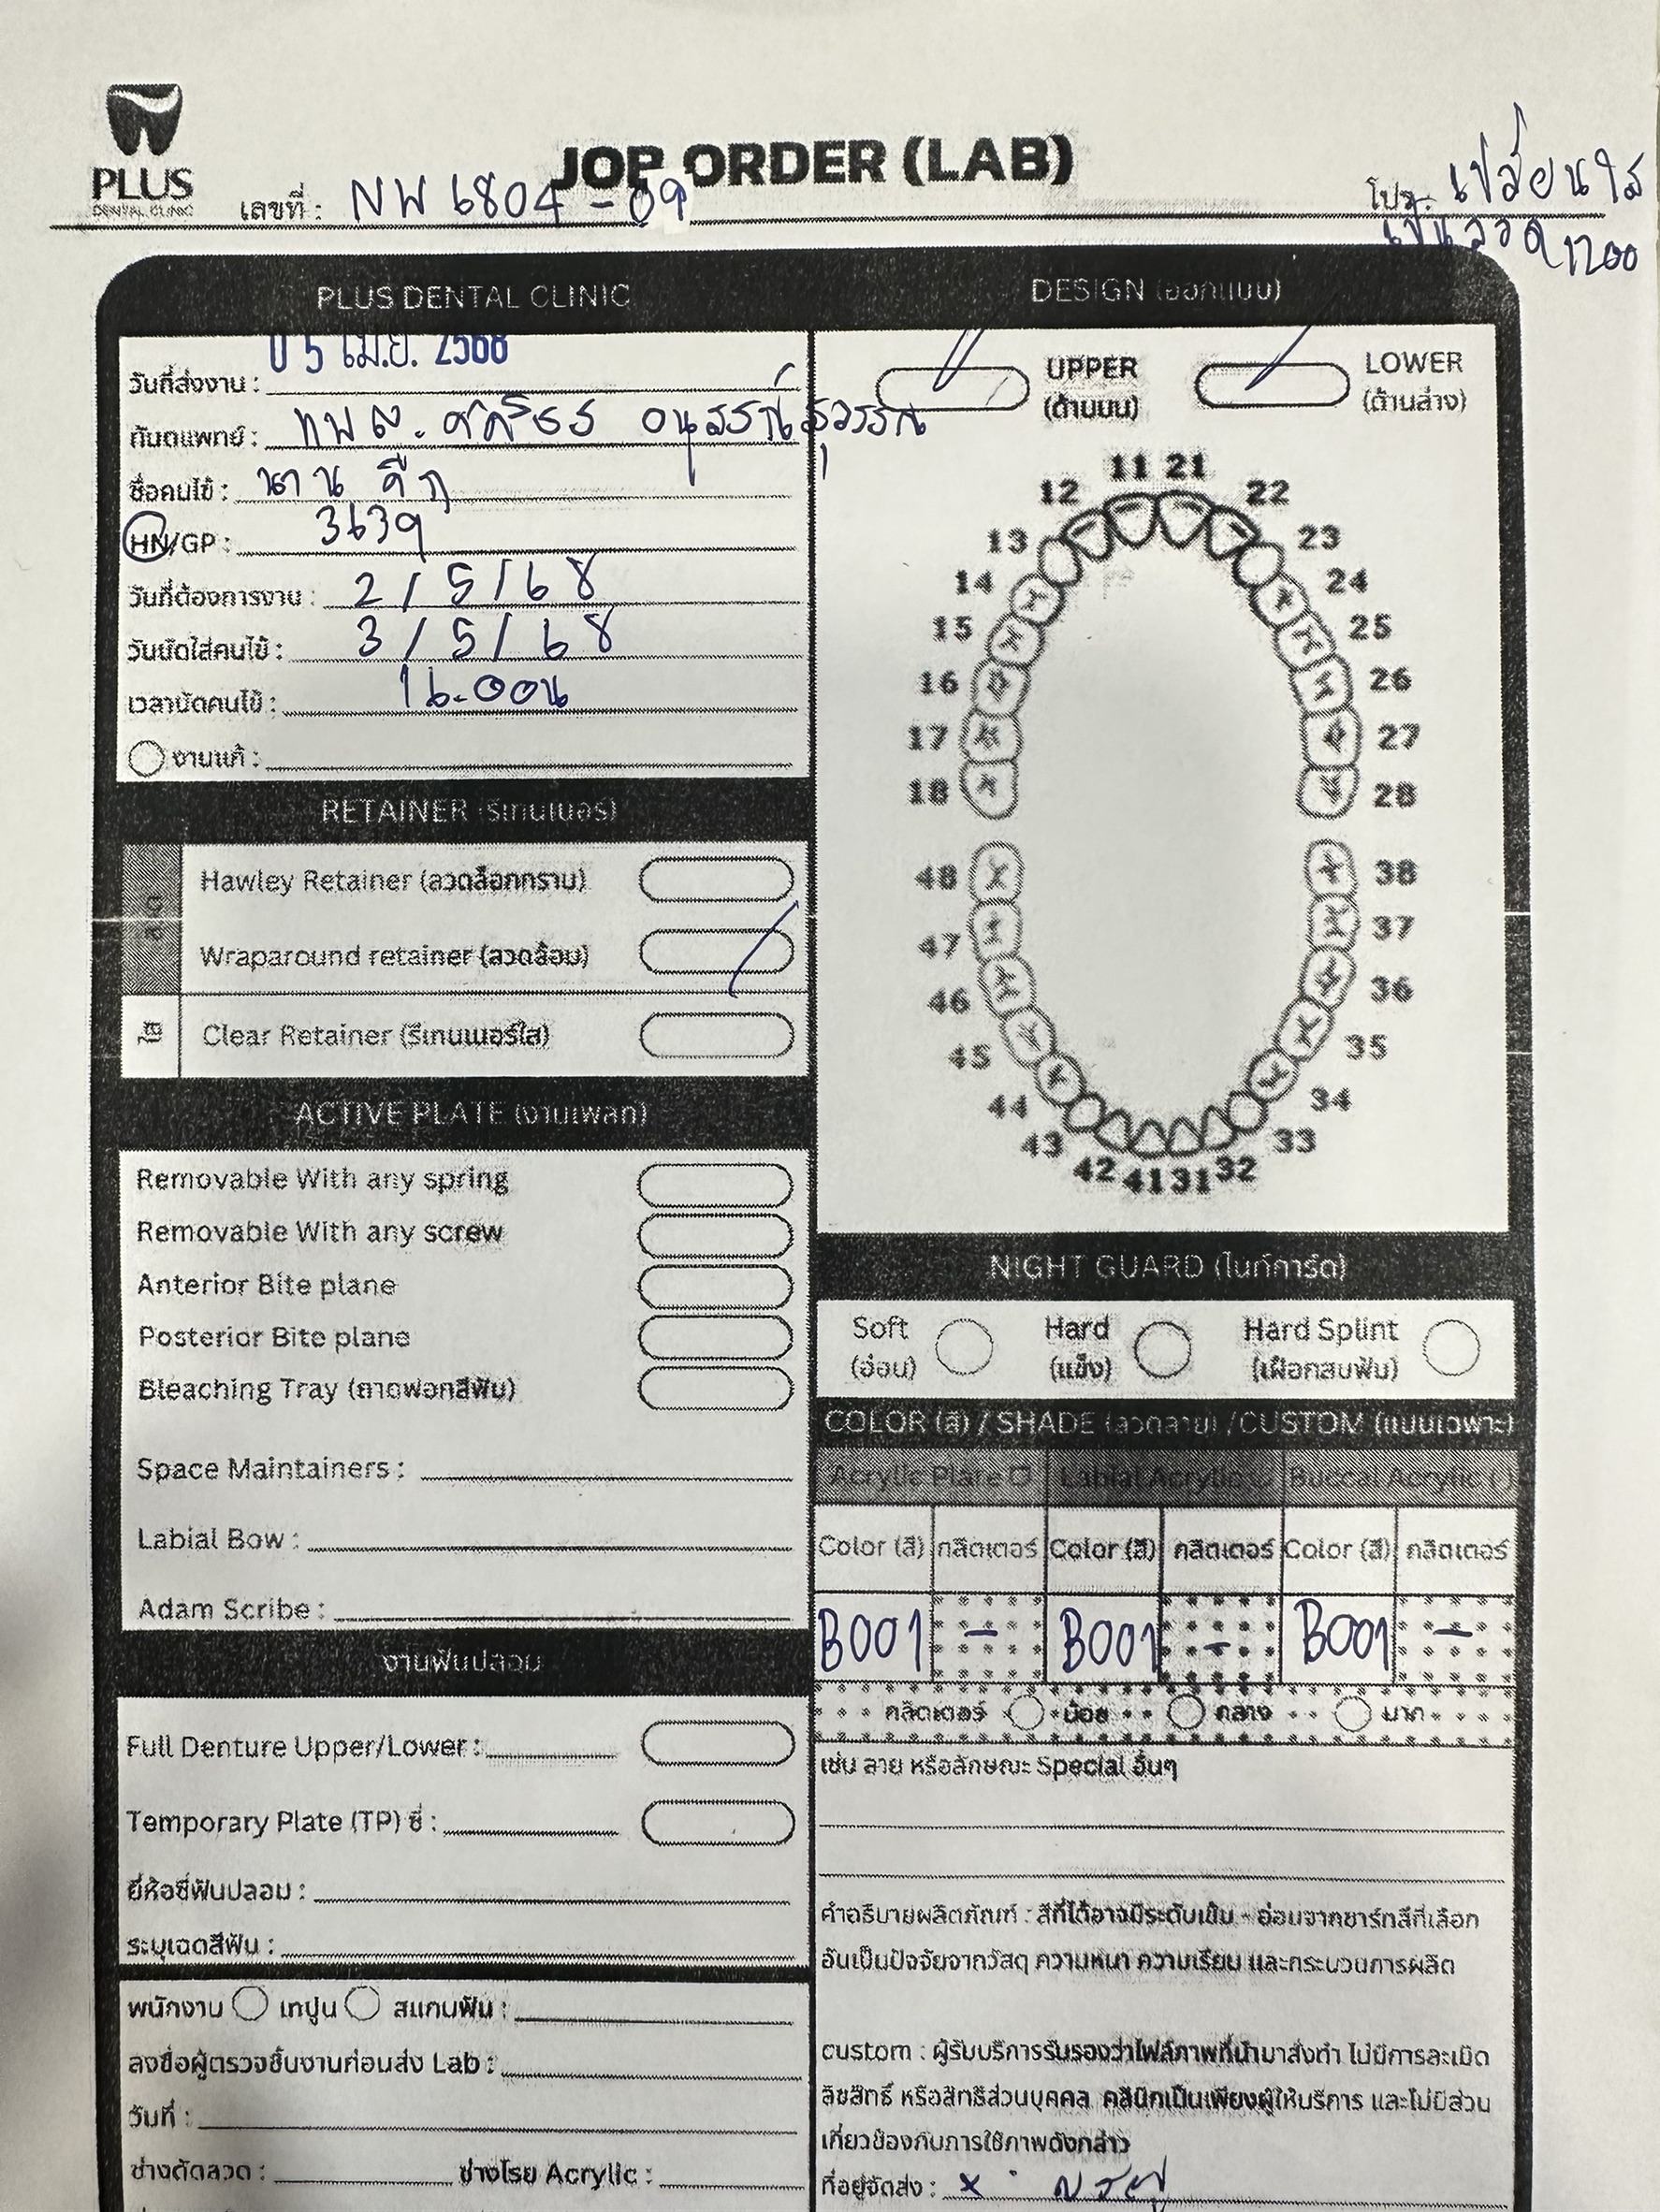 PLUS
DENTAL CLINIC
JOP ORDER (LAB)
เลขที่ : NW 6804-09
โปร. เปลี่ยนใส
เป็นลวด 1200
PLUS DENTAL CLINIC
วันที่ส่งงาน : 05 เม.ย. 2568
ทันตแพทย์ : ทพญ.
ชื่อคนไข้ :
HN/GP : 3639
วันที่ต้องการงาน : 2/5/68
วันนัดใส่คนไข้ : 3/5/68
เวลานัดคนไข้ : 16.00น
งานแก้ :
RETAINER (รีเทนเนอร์)
Hawley Retainer (ลวดล็อกกราม)
Wraparound retainer (ลวดล้อม)
ใส
Clear Retainer (รีเทนเนอร์ใส)
ACTIVE PLATE (งานเพลท)
Removable With any spring
Removable With any screw
Anterior Bite plane
Posterior Bite plane
Bleaching Tray (ถาดฟอกสีฟัน)
Space Maintainers :
Labial Bow :
Adam Scribe :
งานฟันปลอม
Full Denture Upper/Lower :
Temporary Plate (TP) ซี่ :
ยี่ห้อซี่ฟันปลอม :
ระบุเฉดสีฟัน :
พนักงาน เทปูน สแกนฟัน :
ลงชื่อผู้ตรวจชิ้นงานก่อนส่ง Lab :
วันที่ :
ช่างดัดลวด : ช่างโรย Acrylic :
DESIGN (ออกแบบ)
UPPER
(ด้านบน)
LOWER
(ด้านล่าง)
11 21
12 22
13 23
14 24
15 25
16 26
17 27
18 28
48 38
47 37
46 36
45 35
44 34
43 33
42 41 31 32
NIGHT GUARD (ไนท์การ์ด)
Soft
(อ่อน)
Hard
(แข็ง)
Hard Splint
(เฝือกสบฟัน)
COLOR (สี) / SHADE (ลวดลาย) /CUSTOM (แบบเฉพาะ)
Acrylic Plate Labial Acrylic Buccal Acrylic
Color (สี) กลิตเตอร์ Color (สี) กลิตเตอร์ Color (สี) กลิตเตอร์
B001 - B001 - B001 -
กลิตเตอร์ น้อย กลาง มาก
เช่น ลาย หรือลักษณะ Special อื่นๆ
คำอธิบายผลิตภัณฑ์ : สีที่ได้อาจมีระดับเข้ม - อ่อนจากชาร์ทสีที่เลือก
อันเป็นปัจจัยจากวัสดุ ความหนา ความเรียบ และกระบวนการผลิต
custom : ผู้รับบริการรับรองว่าไฟล์ภาพที่นำมาสั่งทำ ไม่มีการละเมิด
ลิขสิทธิ์ หรือสิทธิส่วนบุคคล คลินิกเป็นเพียงผู้ให้บริการ และไม่มีส่วน
เกี่ยวข้องกับการใช้ภาพดังกล่าว
ที่อยู่จัดส่ง : x